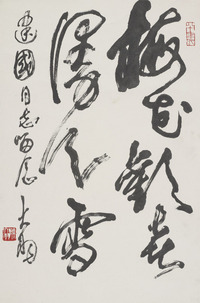 梅花歡喜
漫天雪
建國同志留念
大羽